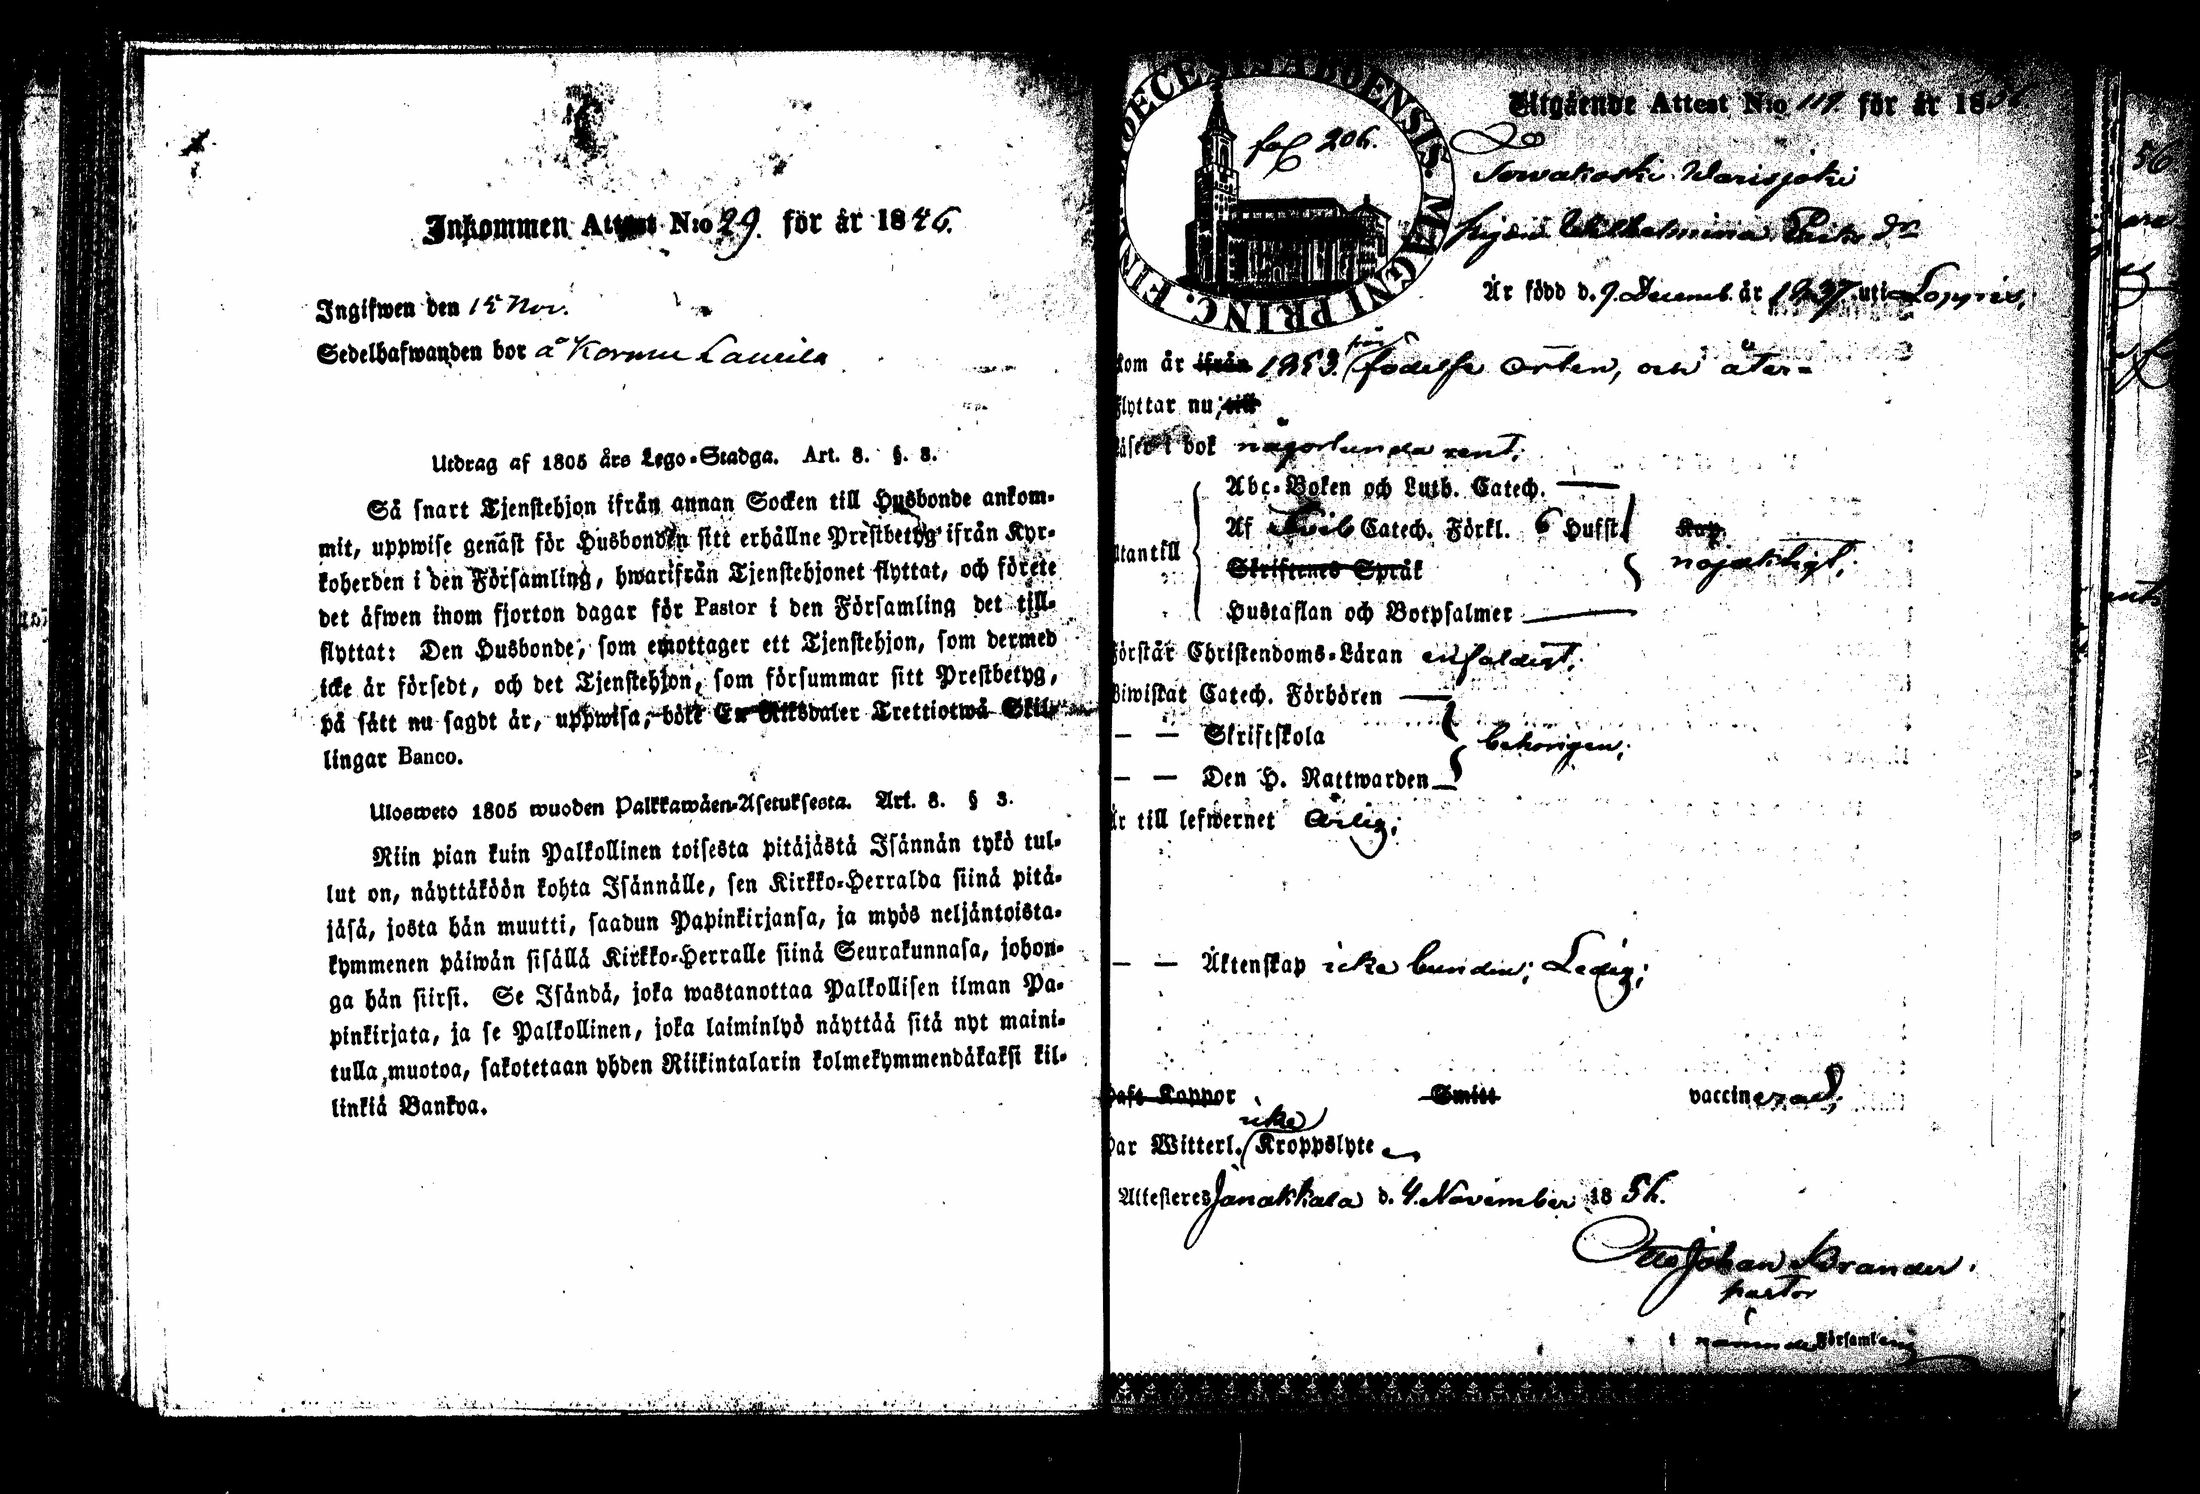 Inkommen Attest N:o 29. för år 1846.
Ingifwen den 15 Nov.
Sedelhafwanden bor å Kormu Laurila
Utdrag af 1805 års Lego-Stadga. Art. 8. §. 3.
Så snart Tjenstehjon ifrån annan Socken till Husbonde ankom-
mit, uppwise genast för Husbonden sitt erhållne Prestbetyg ifrån Kyr-
koherden i den Församling, hwarifrån Tjenstehjonet flyttat, och förete
det äfwen inom fjorton dagar för Pastor i den Församling det till-
flyttat: Den Husbonde, som emottager ett Tjenstehjon, som dermed
icke är försedt, och det Tjenstehjon, som försummar sitt Prestbetyg,
på sätt nu sagdt är, uppwisa, böte En Riksdaler Trettiotwå Skil-
lingar Banco.
Ulosweto 1805 wuoden Palkkawäen-Asetuksesta. Art. 8. § 3.
Niin pian kuin Palkollinen toisesta pitäjästä Isännän tykö tul-
lut on, näyttäköön kohta Isännälle, sen Kirkko-Herralda siinä pitä-
jäsä, josta hän muutti, saadun Papinkirjansa, ja myös neljäntoista-
kymmenen päiwän sisällä Kirkko-Herralle siinä Seurakunnasa, johon-
ga hän siirsi. Se Isändä, joka wastanottaa Palkollisen ilman Pa-
pinkirjata, ja se Palkollinen, joka laiminlyö näyttää sitä nyt maini-
tulla muotoa, sakotetaan yhden Riikintalarin kolmekymmendäkaksi kil-
linkiä Bankoa.
DIOECESIS ABOENSIS. MAGNI PRINC. FIN
fol 206.
Utgående Attest N:o 119. för år 1856
Tervakoski Warisjoki
pigan Wilhelmina Eriks dr
Är född d. 9. Decemb. år 1837. uti Loppis,
kom år ifrån 1853. från födelse orten, och åter-
flyttar nu, till
läser i bok någorlunda rent;
Abc-Boken och Luth. Catech.
utantill
Af Svib Catech. Förkl. 6 Hufst. Kap. nöjaktigt;
Skriftenes Språk
Hustaflan och Botpsalmer
Förstår Christendoms-Läran enfaldigt;
Biwistat Catech. Förhören
— — Skriftskola behörigen;
— — Den H. Nattwarden
Är till lefwernet ärlig;
— — Äktenskap icke bunden; Ledig;
Haft Koppor Smitt vaccinerad;
Har Witterl. icke Kroppslyte
Attesteres Janakkala d. 4. November 1856.
Otto Johan Brander.
pastor
i nämnde Församling